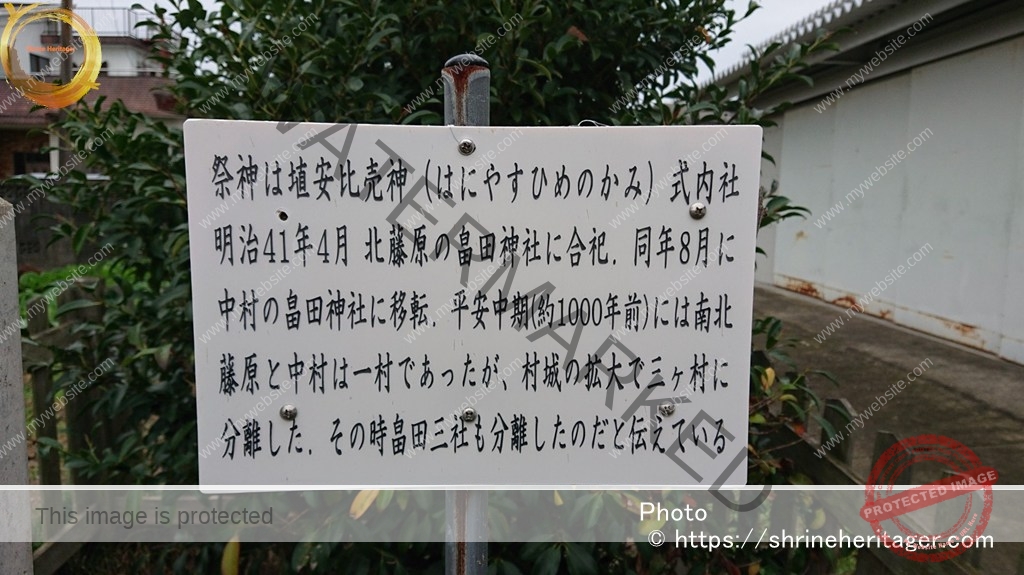 Shrine Heritager
祭神は埴安比売神（はにやすひめのかみ）式内社
明治41年4月 北藤原の畠田神社に合祀．同年8月に
中村の畠田神社に移転．平安中期(約1000年前)には南北
藤原と中村は一村であったが、村城の拡大で三ヶ村に
分離した．その時畠田三社も分離したのだと伝えている
WATERMARKED
www.mywebsite.com
This image is protected
PROTECTED IMAGE
Photo
© https://shrineheritager.com